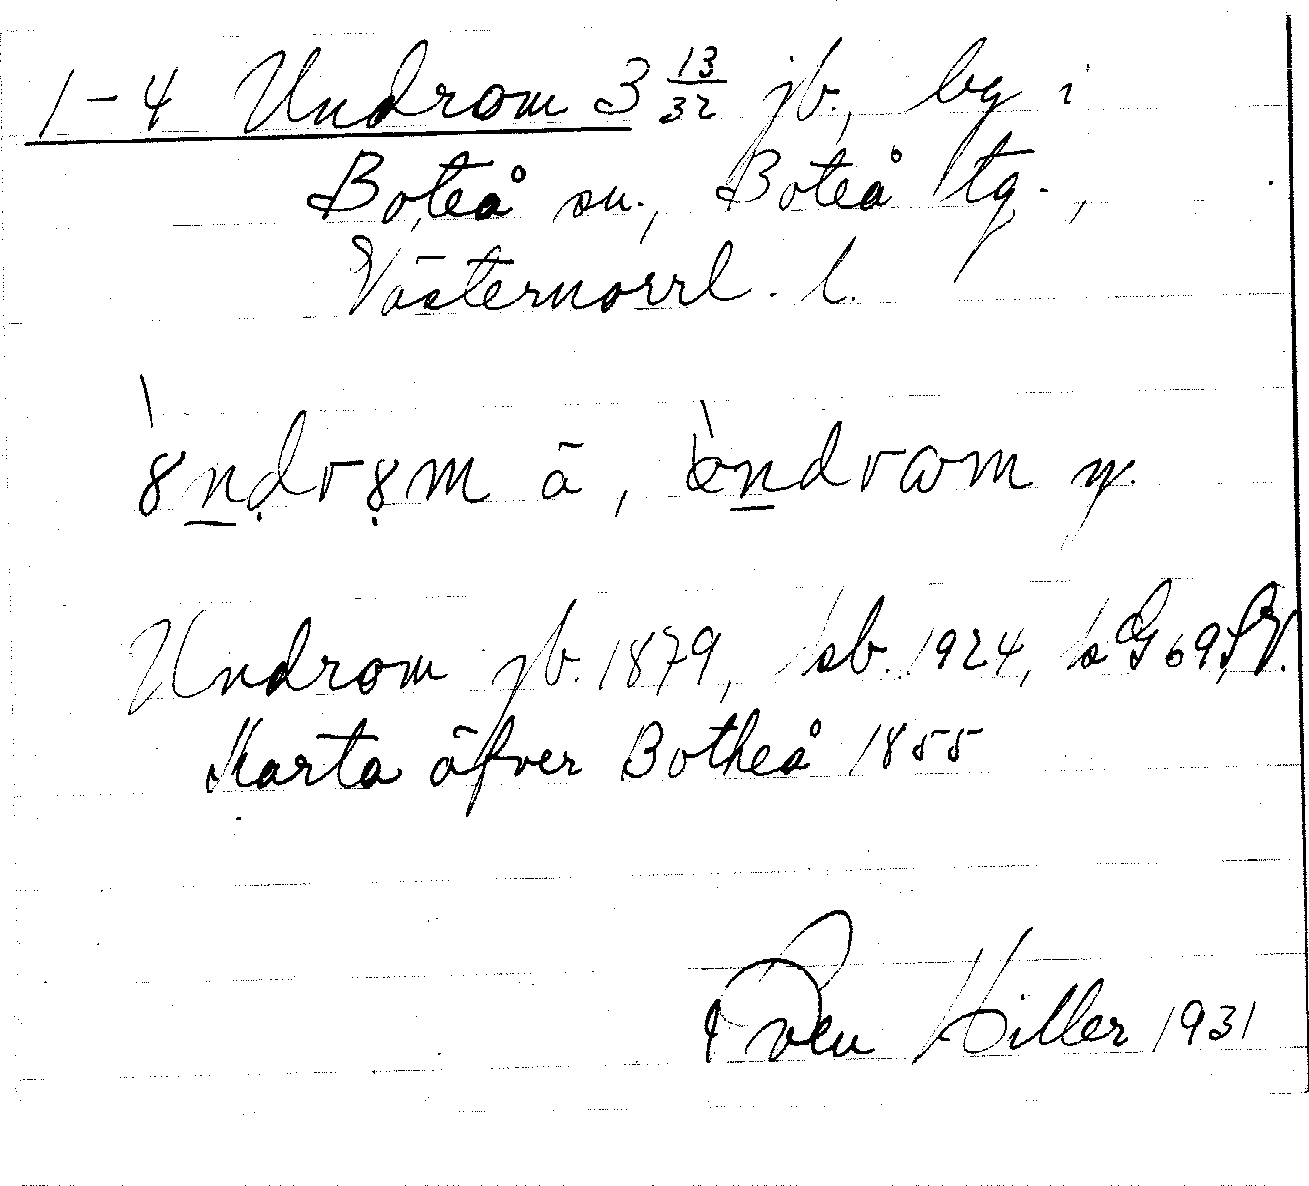 1-4 Undrom 3 13/32 jb., by i
Boteå sn., Boteå tg.,
Västernorrl. l.
ä, y.
Undrom jb. 1879, sb. 1924, G 69
Karta öfver Botheå 1855
Sven Hiller 1931